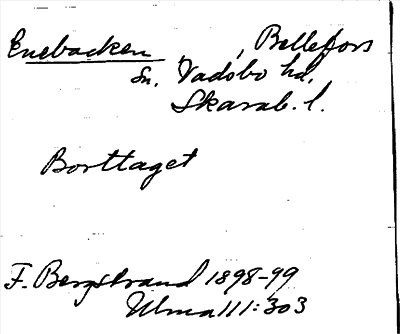 Enebacken, Bellefors
sn, Vadsbo hd,
Skarab. l.
Borttaget
F. Bergstrand 1898-99
Ulma 111:303